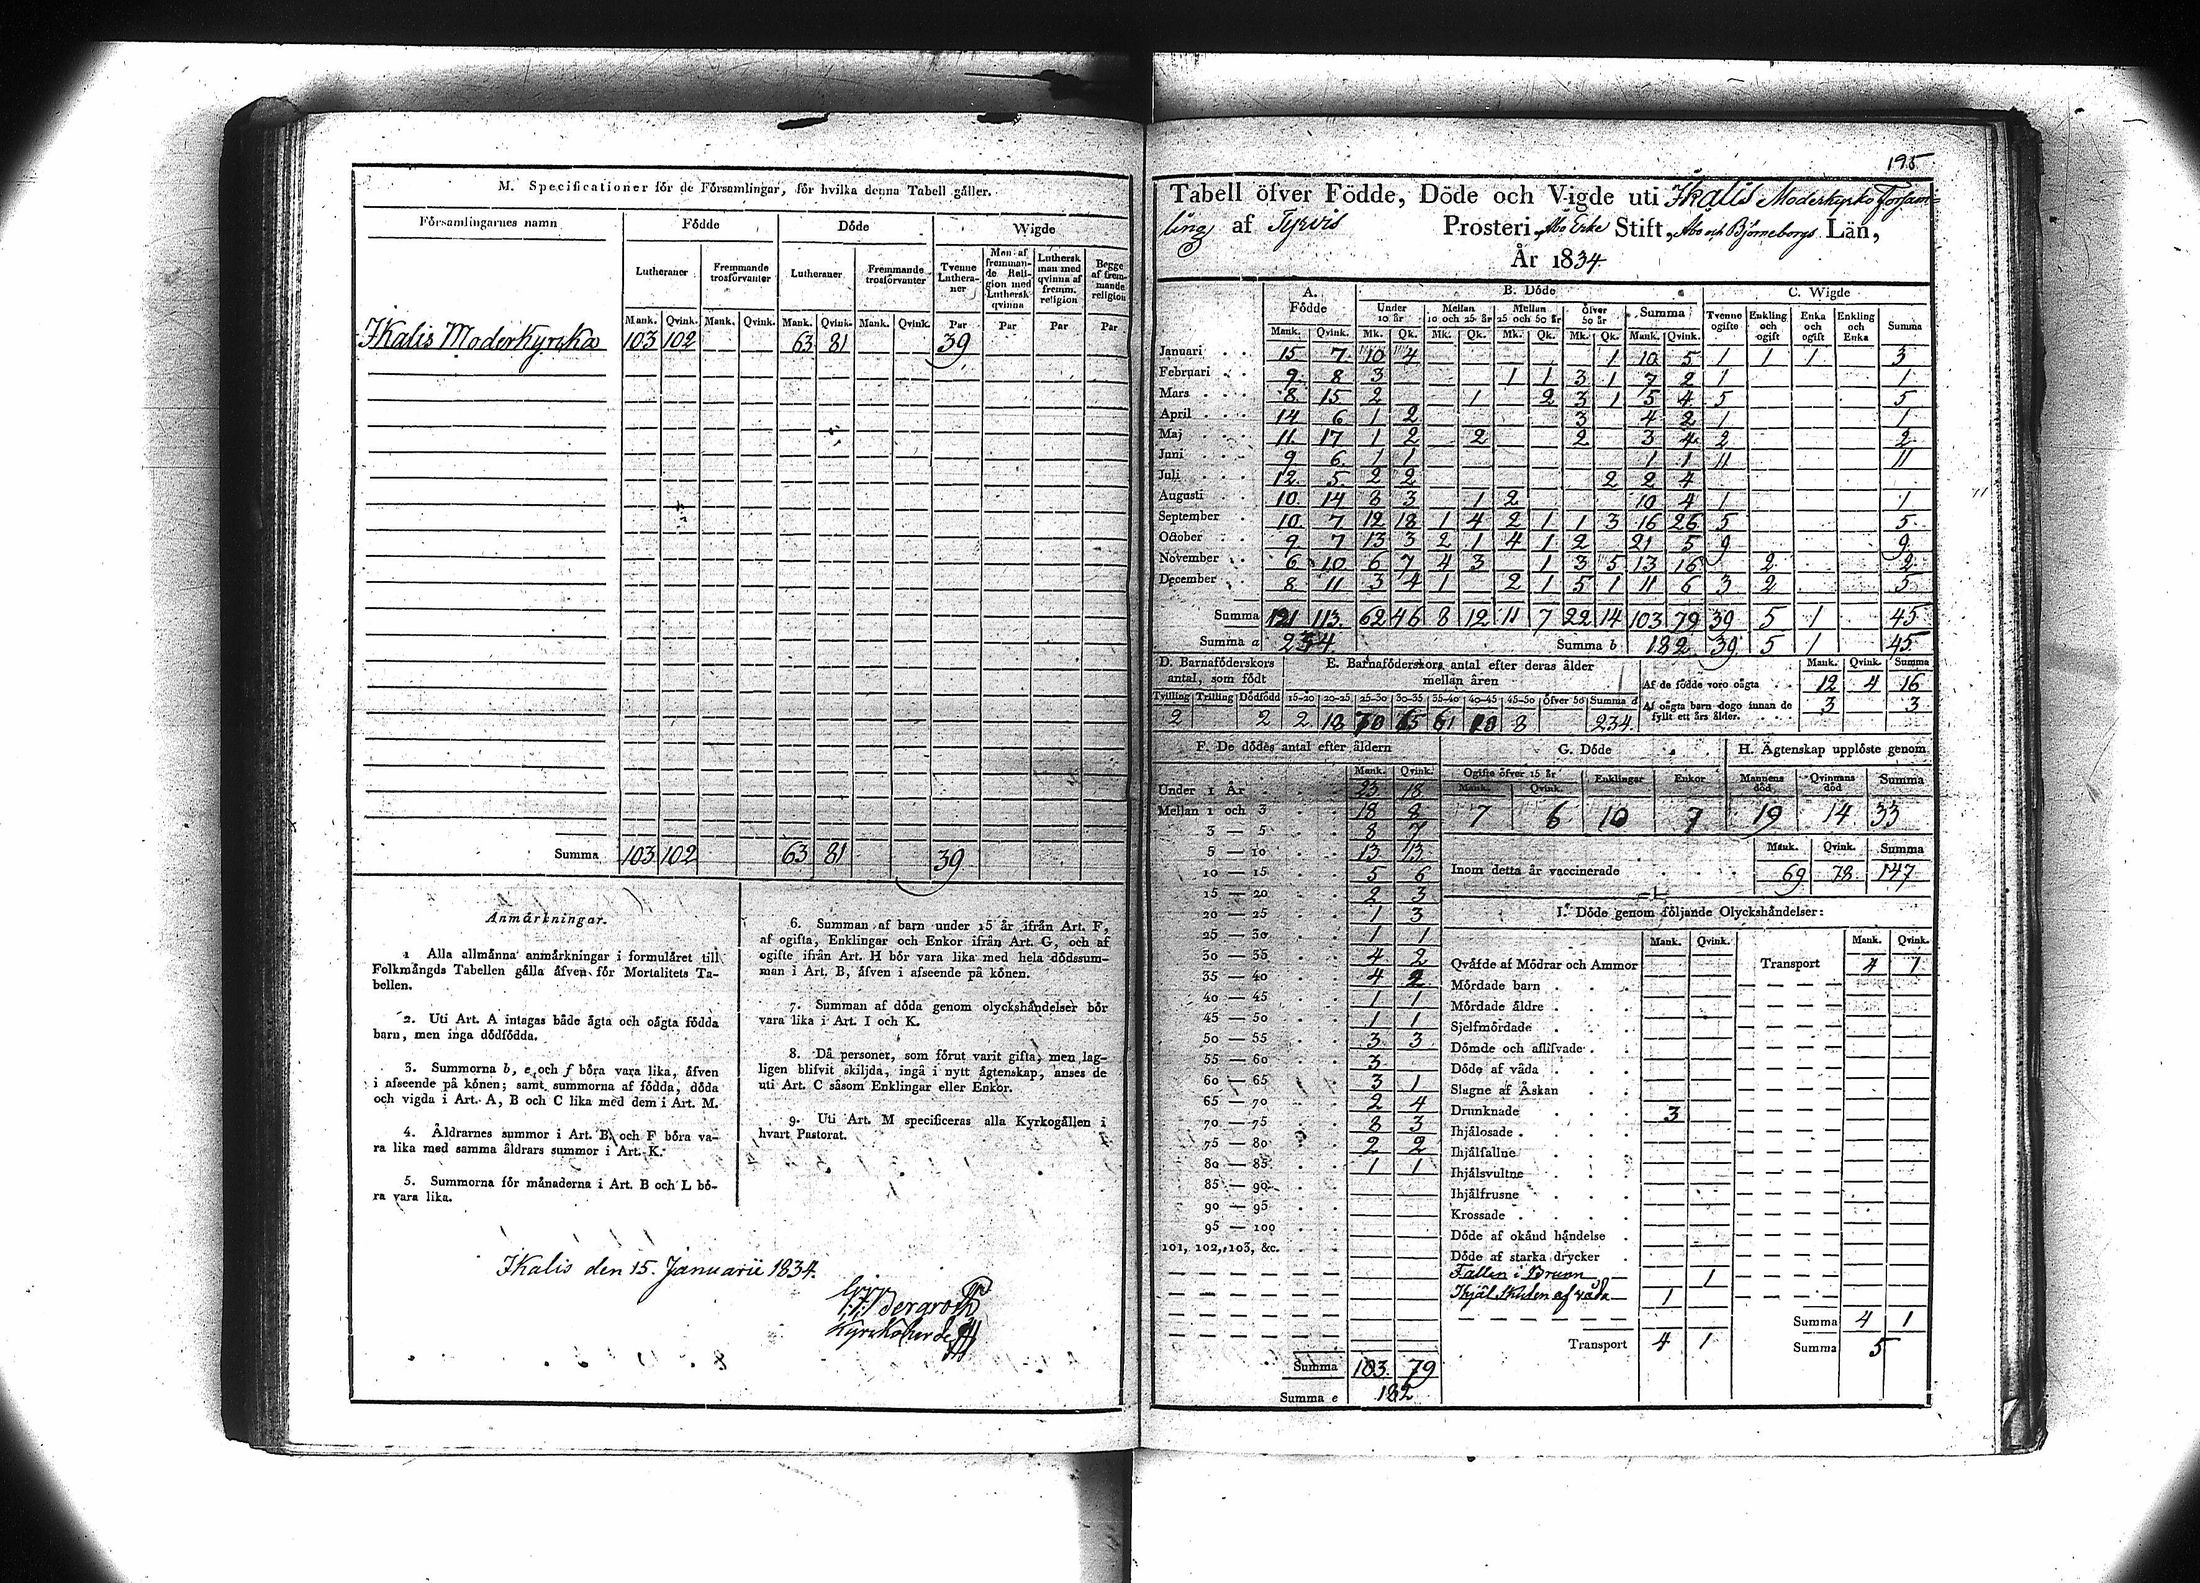 M. Specificationer för de Församlingar, för hvilka denna Tabell gäller.
Församlingarnes namn Födde Döde Wigde
Lutheraner Fremmande trosförvanter Lutheraner Fremmande trosförvanter Tvenne Lutheraner Man af fremmande Religion med Luthersk qvinna Luthersk man med qvinna af fremm. religion Begge af fremmande religion
Mank. Qvink. Mank. Qvink. Mank. Qvink. Mank. Qvink. Par Par Par Par
Ikalis Moderkyrka 103 102 63 81 39
Summa 103 102 63 81 39
Anmärkningar.
1 Alla allmänna anmärkningar i formuläret till
Folkmängds Tabellen gälla äfven för Mortalitets Ta-
bellen.
2. Uti Art. A intagas både ägta och oägta födda
barn, men inga dödfödda.
3. Summorna b, e och f böra vara lika, äfven
i afseende på könen; samt summorna af födda, döda
och vigda i Art. A, B och C lika med dem i Art. M.
4. Åldrarnes summor i Art. B och F böra va-
ra lika med samma åldrars summor i Art. K.
5. Summorna för månaderna i Art. B och L bö-
ra vara lika.
6. Summan af barn under 15 år ifrån Art. F,
af ogifta, Enklingar och Enkor ifrån Art. G, och af
ogifte ifrån Art. H bör vara lika med hela dödssum-
man i Art. B, äfven i afseende på könen.
7. Summan af döda genom olyckshändelser bör
vara lika i Art. I och K.
8. Då personer, som förut varit gifta, men lag-
ligen blifvit skiljda, ingå i nytt ägtenskap, anses de
uti Art. C såsom Enklingar eller Enkor.
9. Uti Art. M specificeras alla Kyrkogällen i
hvart Pastorat.
Ikalis den 15. Januarii 1834.
Bergroth
Kyrkoherde
195
Tabell öfver Födde, Döde och Vigde uti Ikalis Moderkyrko Försam-
ling af Tyrvis Prosteri, Åbo Erke Stift, Åbo och Björneborgs Län,
År 1834
A. Födde B. Döde C. Wigde
Under 10 år Mellan 10 och 25 år Mellan 25 och 50 år Öfver 50 år Summa Tvenne ogifte Enkling och ogift Enka och ogift Enkling och Enka Summa
Mank. Qvink. Mk. Qk. Mk. Qk. Mk. Qk. Mk. Qk. Mank. Qvink.
Januari 15 7 10 4 1 10 5 1 1 1 3
Februari 9 8 3 1 1 3 1 7 2 1 1
Mars 8 15 2 1 2 3 1 5 4 5 5
April 14 6 1 2 3 4 2 1 1
Maj 11 17 1 2 2 2 3 4 2 2
Juni 9 6 1 1 1 1 11 11
Juli 12 5 2 2 2 2 4
Augusti 10 14 8 3 1 2 10 4 1 1
September 10 7 12 18 1 4 2 1 1 3 16 26 5 5
October 9 7 13 3 2 1 4 1 2 21 5 9 9
November 6 10 6 7 4 3 1 3 5 13 16 2 2
December 8 11 3 4 1 2 1 5 1 11 6 3 2 5
Summa 121 113 62 46 8 12 11 7 22 14 103 79 39 5 1 45
Summa a 234 Summa b 182 39 5 1 45
D. Barnaföderskors antal, som födt E. Barnaföderskors antal efter deras ålder mellan åren Mank. Qvink. Summa
Tvilling Trilling Dödfödd 15-20 20-25 25-30 30-35 35-40 40-45 45-50 Öfver 50 Summa d
2 2 2 18 8 234
Af de födde voro oägta 12 4 16
Af oägta barn dogo innan de fyllt ett års ålder. 3 3
F. De dödes antal efter åldern
Mank. Qvink.
Under 1 År 23 18
Mellan 1 och 3 18 8
3 — 5 8 7
5 — 10 13 13
10 — 15 5 6
15 — 20 2 3
20 — 25 1 3
25 — 30 1 1
30 — 35 4 2
35 — 40 4 2
40 — 45 1 1
45 — 50 1 1
50 — 55 3 3
55 — 60 3
60 — 65 3 1
65 — 70 2 4
70 — 75 8 3
75 — 80 2 2
80 — 85 1 1
85 — 90
90 — 95
95 — 100
101, 102, 103, &c.
Summa 103 79
Summa e 182
G. Döde H. Ägtenskap upplöste genom
Ogifte öfver 15 år Enklingar Enkor Mannens död Qvinnans död Summa
Mank. Qvink.
7 6 10 7 19 14 33
Mank. Qvink. Summa
Inom detta år vaccinerade 69 78 147
I. Döde genom följande Olyckshändelser:
Mank. Qvink. Mank. Qvink.
Qväfde af Mödrar och Ammor Transport 4 1
Mördade barn
Mördade äldre
Sjelfmördade
Dömde och aflifvade
Döde af våda
Slagne af Åskan
Drunknade 3
Ihjälosade
Ihjälfallne
Ihjälsvultne
Ihjälfrusne
Krossade
Döde af okänd händelse
Döde af starka drycker
Fallen i Brunn 1
Ihjäl Skuten af våda 1
Summa 4 1
Transport 4 1 Summa 5